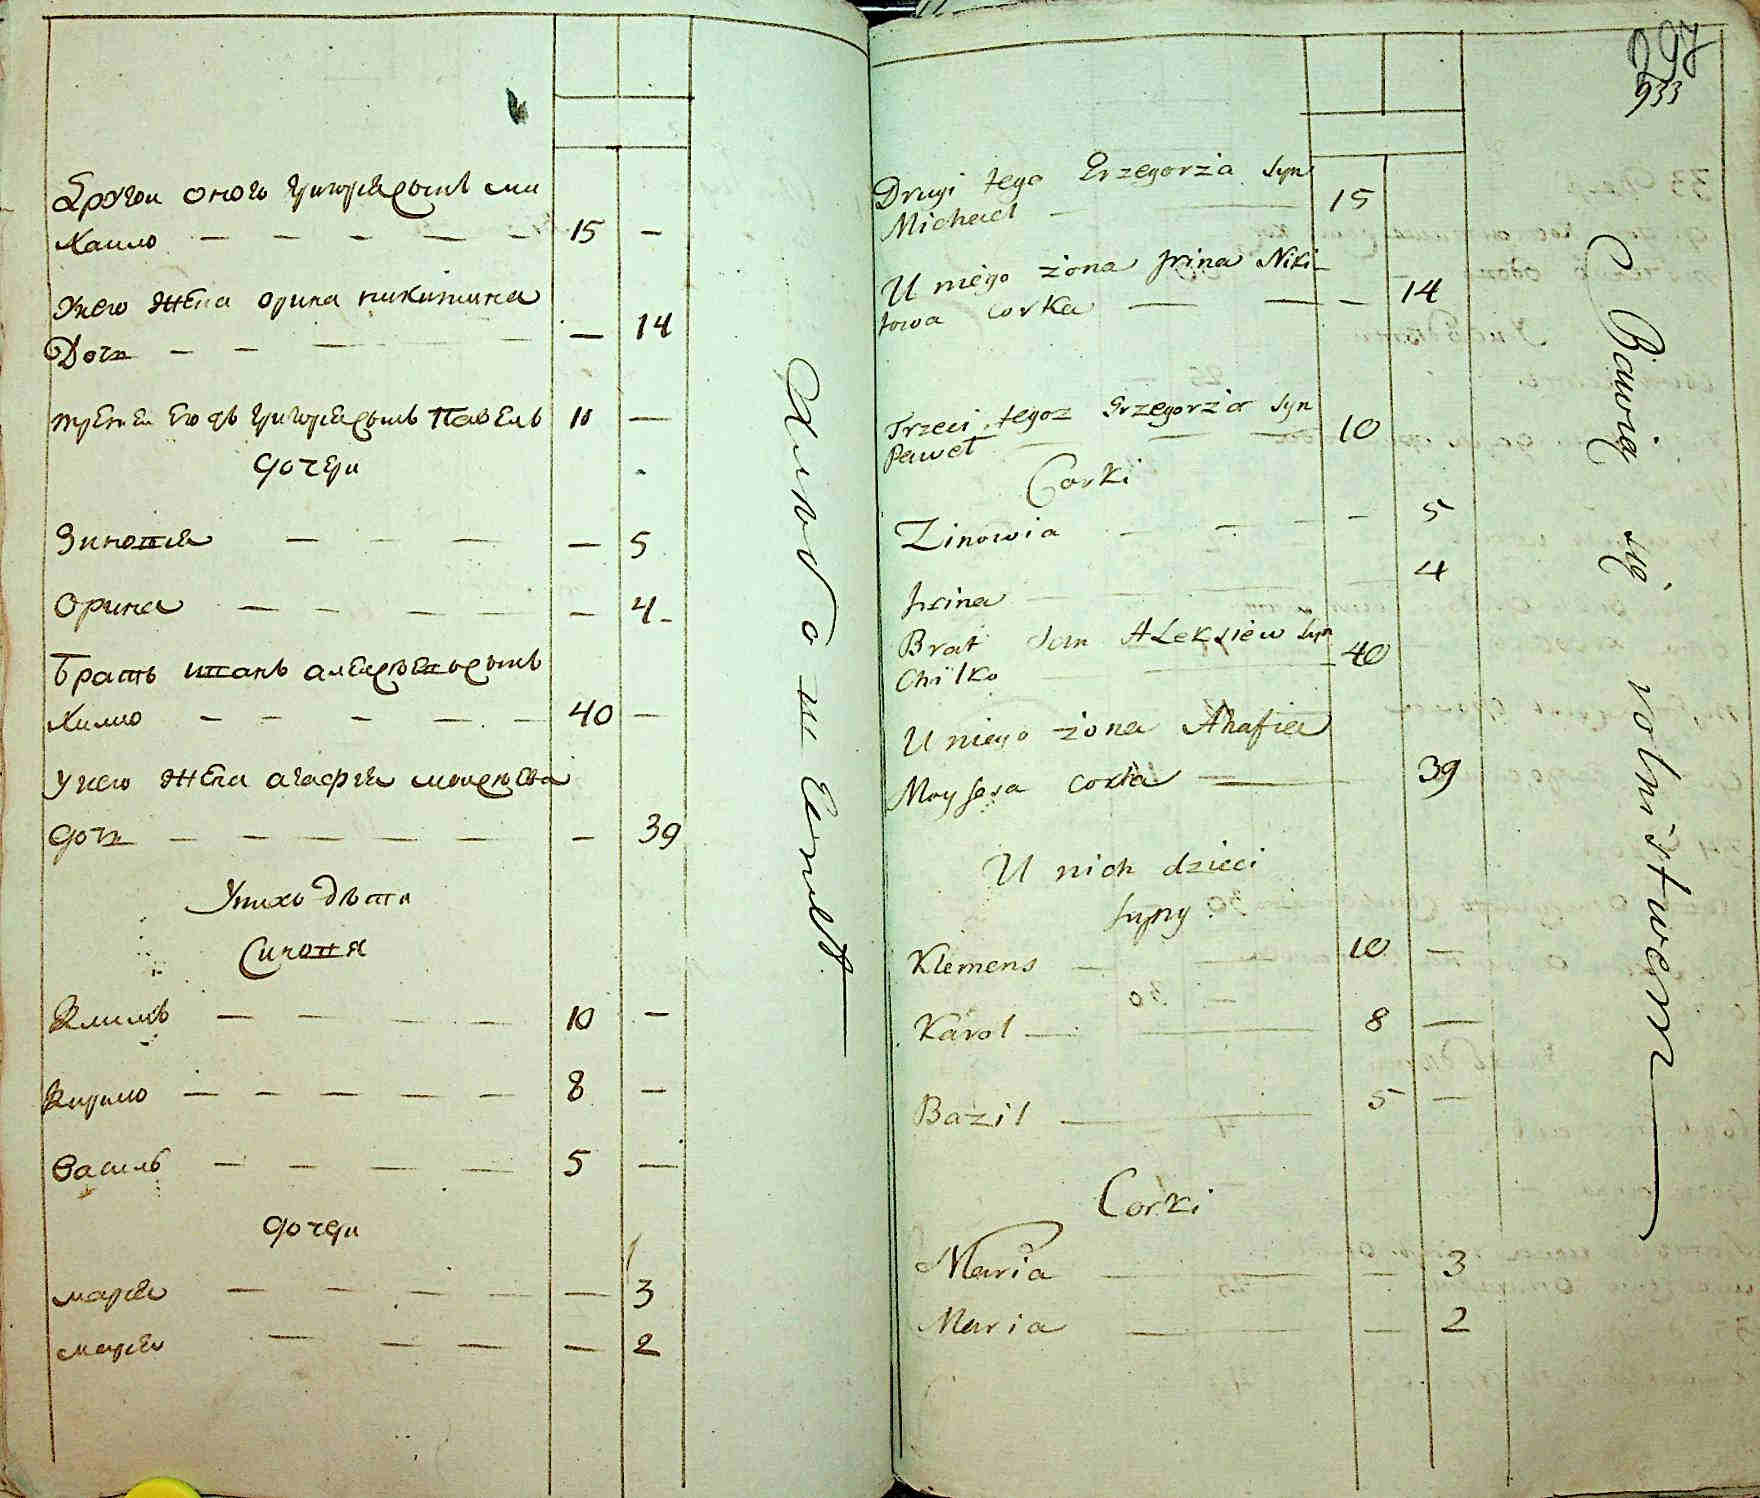 Другои оного григорьевъ сынъ ми
хаило — — — — — 15 —
унего жена орина никитина
дочь — — — — — — 14
третеи его жъ григорьевъ сынъ павелъ 10 —
дочери
Зиновия — — — — 5
Орина — — — — — 4
Братъ иванъ алексѣевъ сынъ
Хилко — — — — — 40 —
унего жена агафия моисѣева
дочь — — — — — — 39
унихъ дѣти
Синовя
Климъ — — — — 10 —
Кирило — — — — — 8 —
Василь — — — — 5 —
дочери
мария — — — — — 3
мария — — — — 2
Хлебопашествомъ
297
933
Drugi tego Grzegorza syn
Michael — — 15
U niego żona Irina Niki-
towa corka — — — 14
Trzeci tegoż Grzegorza syn
Paweł — — — 10
Corki
Zinowia — — — — 5
Irina — — — 4
Brat Jan Aleksiew syn
Chilko — — — 40
U niego żona Ahafia
Moysova corka — — 39
U nich dzieci
syny
Klemens — — 10 —
Karol — — 8 —
Bazil — — 5 —
Corki
Maria — — — 3
Maria — — — 2
Bawią się rolnistwem